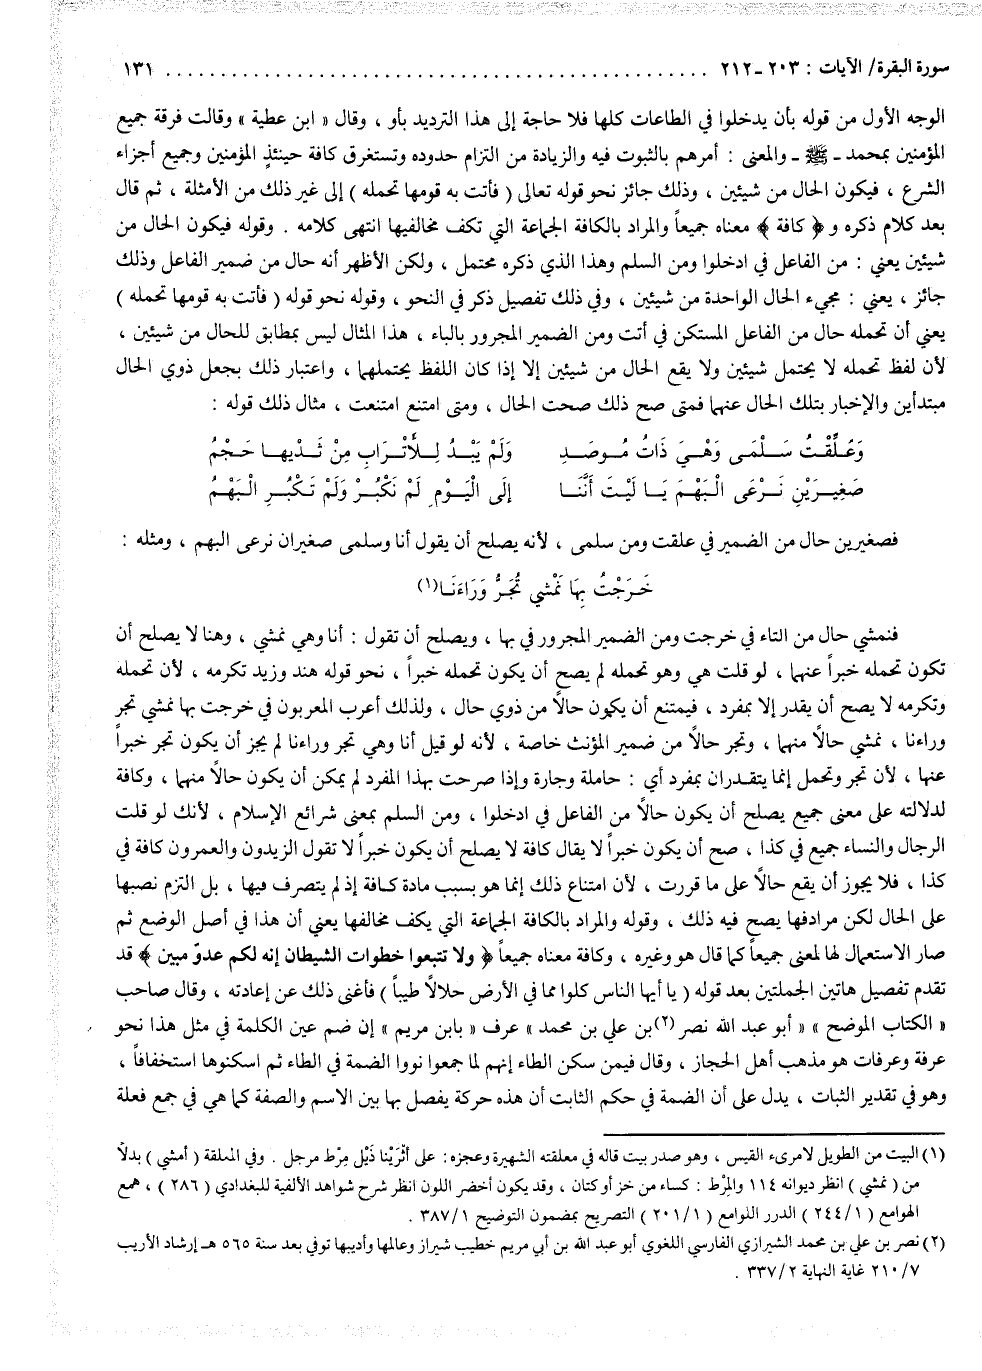 سورة البقرة/ الآيات : ٢٠٣ ـ ٢١٢ .................................................. ١٣١
الوجه الأول من قوله بأن يدخلوا في الطاعات كلها فلا حاجة إلى هذا الترديد بأو ، وقال « ابن عطية » وقالت فرقة جميع
المؤمنين بمحمد ـ ﷺ ـ والمعنى : أمرهم بالثبوت فيه والزيادة من التزام حدوده وتستغرق كافة حينئذٍ المؤمنين وجميع أجزاء
الشرع ، فيكون الحال من شيئين ، وذلك جائز نحو قوله تعالى ( فأتت به قومها تحمله ) إلى غير ذلك من الأمثلة ، ثم قال
بعد كلام ذكره و ﴿ كافة ﴾ معناه جميعاً والمراد بالكافة الجماعة التي تكف مخالفيها انتهى كلامه . وقوله فيكون الحال من
شيئين يعني : من الفاعل في ادخلوا ومن السلم وهذا الذي ذكره محتمل ، ولكن الأظهر أنه حال من ضمير الفاعل وذلك
جائز ، يعني : مجيء الحال الواحدة من شيئين ، وفي ذلك تفصيل ذكر في النحو ، وقوله نحو قوله ( فأتت به قومها تحمله )
يعني أن تحمله حال من الفاعل المستكن في أتت ومن الضمير المجرور بالباء ، هذا المثال ليس بمطابق للحال من شيئين ،
لأن لفظ تحمله لا يحتمل شيئين ولا يقع الحال من شيئين إلا إذا كان اللفظ يحتملهما ، واعتبار ذلك بجعل ذوي الحال
مبتدأين والإخبار بتلك الحال عنهما فمتى صح ذلك صحت الحال ، ومتى امتنع امتنعت ، مثال ذلك قوله :
وَعُلِّقْتُ سَلْمَى وَهْيَ ذَاتُ مُوصَدِ وَلَمْ يَبْدُ لِلأَتْرَابِ مِنْ ثَدْيِهَا حَجْمُ
صَغِيرَيْنِ نَرْعَى الْبَهْمَ يَا لَيْتَ أَنَّنَا إِلَى الْيَوْمِ لَمْ نَكْبُرْ وَلَمْ تَكْبُرِ الْبَهْمُ
فصغيرين حال من الضمير في علقت ومن سلمى ، لأنه يصلح أن يقول أنا وسلمى صغيران نرعى البهم ، ومثله :
خَرَجْتُ بِهَا نَمْشِي تُجَرُّ وَرَاءَنَا(١)
فنمشي حال من التاء في خرجت ومن الضمير المجرور في بها ، ويصلح أن تقول : أنا وهي نمشي ، وهنا لا يصلح أن
تكون تحمله خبراً عنهما ، لو قلت هي وهو تحمله لم يصح أن يكون تحمله خبراً ، نحو قوله هند وزيد تكرمه ، لأن تحمله
وتكرمه لا يصح أن يقدر إلا بمفرد ، فيمتنع أن يكون حالاً من ذوي حال ، ولذلك أعرب المعربون في خرجت بها نمشي تجر
وراءنا ، نمشي حالاً منهما ، وتجر حالاً من ضمير المؤنث خاصة ، لأنه لو قيل أنا وهي تجر وراءنا لم يجز أن يكون تجر خبراً
عنها ، لأن تجر وتحمل إنما يتقدران بمفرد أي : حاملة وجارة وإذا صرحت بهذا المفرد لم يمكن أن يكون حالاً منهما ، وكافة
لدلالته على معنى جميع يصلح أن يكون حالاً من الفاعل في ادخلوا ، ومن السلم بمعنى شرائع الإسلام ، لأنك لو قلت
الرجال والنساء جميع في كذا ، صح أن يكون خبراً لا يقال كافة لا يصلح أن يكون خبراً لا تقول الزيدون والعمرون كافة في
كذا ، فلا يجوز أن يقع حالاً على ما قررت ، لأن امتناع ذلك إنما هو بسبب مادة كافة إذ لم يتصرف فيها ، بل التزم نصبها
على الحال لكن مرادفها يصح فيه ذلك ، وقوله والمراد بالكافة الجماعة التي يكف مخالفها يعني أن هذا في أصل الوضع ثم
صار الاستعمال لها لمعنى جميعاً كما قال هو وغيره ، وكافة معناه جميعاً ﴿ ولا تتبعوا خطوات الشيطان إنه لكم عدوّ مبين ﴾ قد
تقدم تفصيل هاتين الجملتين بعد قوله ( يا أيها الناس كلوا مما في الأرض حلالاً طيباً ) فأغنى ذلك عن إعادته ، وقال صاحب
« الكتاب الموضح » « أبو عبد الله نصر (٢)بن علي بن محمد » عرف « بابن مريم » إن ضم عين الكلمة في مثل هذا نحو
عرفة وعرفات هو مذهب أهل الحجاز ، وقال فيمن سكن الطاء إنهم لما جمعوا نووا الضمة في الطاء ثم اسكنوها استخفافاً ،
وهو في تقدير الثبات ، يدل على أن الضمة في حكم الثابت أن هذه حركة يفصل بها بين الاسم والصفة كما هي في جمع فعلة
(١) البيت من الطويل لامرىء القيس ، وهو صدر بيت قاله في معلقته الشهيرة وعجزه : على أثَرَيْنا ذَيْل مِرْط مرجل . وفي المعلقة ( أمشي ) بدلاً
من ( نمشي ) انظر ديوانه ١١٤ والمِرْط : كساء من خز أو كتان ، وقد يكون أخضر اللون انظر شرح شواهد الألفية للبغدادي ( ٢٨٦ ) ، همع
الهوامع ( ٢٤٤/١ ) الدرر اللوامع ( ٢٠١/١ ) التصريح بمضمون التوضيح ٣٨٧/١ .
(٢) نصر بن علي بن محمد الشيرازي الفارسي اللغوي أبو عبد الله بن أبي مريم خطيب شيراز وعالمها وأديبها توفي بعد سنة ٥٦٥ هـ إرشاد الأريب
٢١٠/٧ غاية النهاية ٣٣٧/٢ .